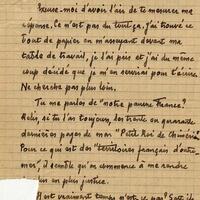 Excuse-moi d'avoir l'air de te mesurer ma
réponse. Ce n'est pas du tout ça, j'ai trouvé ce
bout de papier en m'asseyant devant ma
table de travail, je l'ai pris et j'ai du même
coup décidé que je m'en servirai pour t'écrire.
Ne cherche pas plus loin.
Tu me parles de "notre pauvre France?
Relis, si tu l'as toujours, les trente ou quarante
dernières pages de mon "Petit Roi de Chimérie".
Pour ce qui est des "territoires français d'outre
mer", il semble qu'on commence à me rendre
plus en plus justice.
est vraiment temps n'est-ce pas?